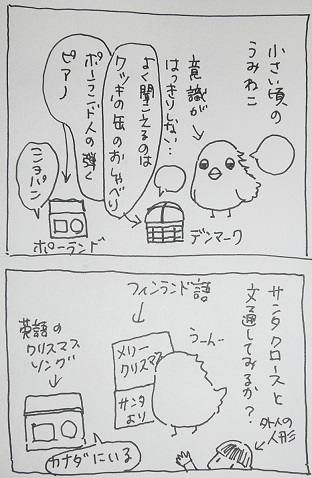 小さい頃の
うみねこ
意識が
はっきりしない…
よく聞こえるのは
クッキーの缶のおしゃべり
ポーランド人の弾く
ピアノ
ショパン
ポーランド
デンマーク
サンタクロースと
文通してみるか?
うーん
フィンランド語
メリー
クリスマス
サンタ
より
英語の
クリスマス
ソング
カナダにいる
外人の
人形